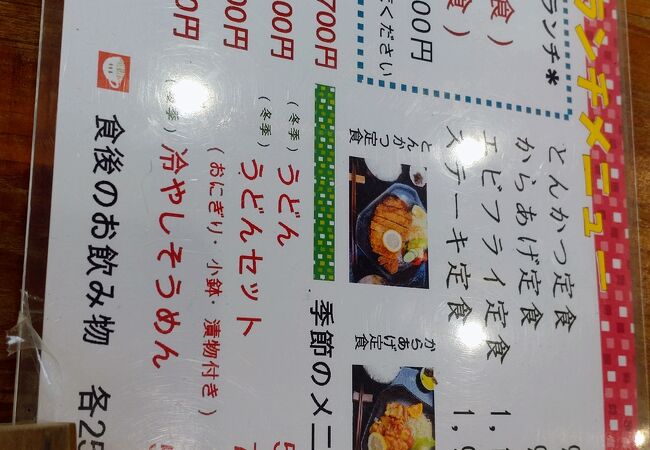 ランチメニュー
ランチ＊
食）
食）
00円
ください
とんかつ定食
からあげ定食
エビフライ定食 1,
ステーキ定食 1,
とんかつ定食
からあげ定食
700円
00円
00円
季節のメニ
（冬季）うどん
（冬季）うどんセット
（おにぎり・小鉢・漬物付き）
季）冷やしそうめん
食後のお飲み物 各25